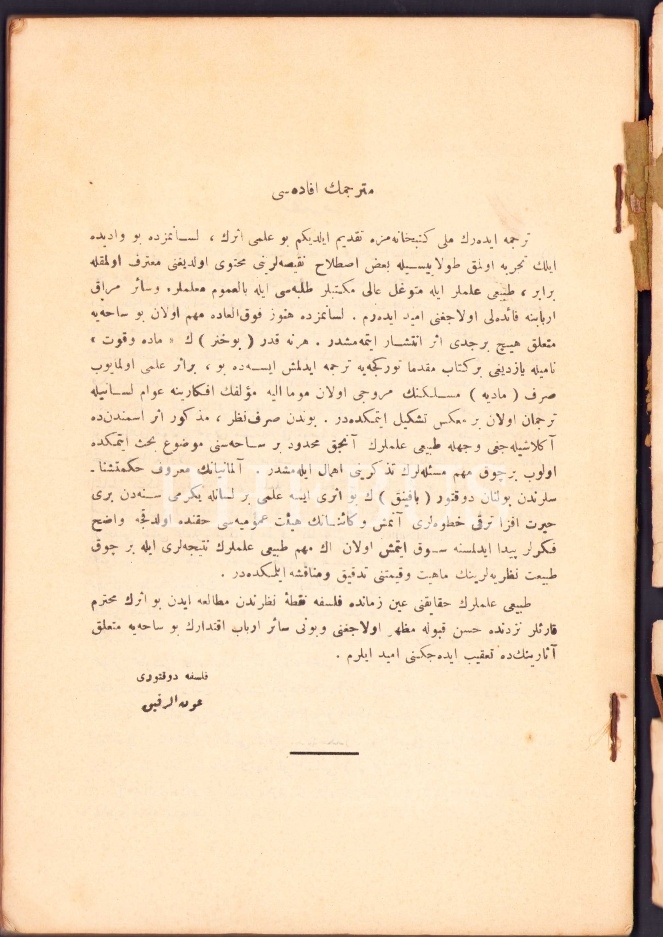 مترجمك افاده‌سى
ترجمه ايده‌رك ملى كتبخانه‌مزه تقديم ايلديكم بو علمى اثرك ، لسانمزده بو واديده
ايلك تجربه اولمق طولاييسيله بعض اصطلاح نقيصه‌لرنى محتوى اولديغنى معترف اولمقله
برابر ، طبيعى علملر ايله متوغل عالى مكتبلر طلبه‌سى ايله بالعموم معلملره وسائر مراق
اربابنه فائده‌لى اولاجغنى اميد ايده‌رم . لسانمزده هنوز فوق‌العاده مهم اولان بو ساحه‌يه
متعلق هيچ برجدى اثر انتشار ايتمه‌مشدر . هرنه قدر ( بوخنر ) ك « ماده وقوت »
ناميله يازديغى بركتاب مقدما توركجه‌يه ترجمه ايدلمش ايسه‌ده بو ، براثر علمى اولمايوب
صرف ( ماديه ) مسلكنك مروجى اولان موما اليه مؤلفك افكارينه عوام لسانيله
ترجمان اولان بر معكس تشكيل ايتمكده‌در . بوندن صرف‌نظر ، مذكور اثر اسمندن‌ده
آكلاشيله‌جغى وجهله طبيعى علملرك آنجق محدود بر ساحه‌سنى موضوع بحث ايتمكده
اولوب برچوق مهم مسئله‌لرك تذكرينى اهمال ايله‌مشدر . آلمانيانك معروف حكمتشنا-
سلرندن بولنان دوقتور ( بافينق ) ك بو اثرى ايسه علمى بر لسانله يكرمى سنه‌دن برى
حيرت افزا ترقى خطوه‌لرى آتمش وكائناتك هيئت عموميه‌سى حقنده اولدقجه واضح
فكرلر پيدا ايدلمسنه سوق ايتمش اولان اك مهم طبيعى علملرك نتيجه‌لرى ايله بر چوق
طبيعت نظريه‌لرينك ماهيت وقيمتنى تدقيق ومناقشه ايلمكده‌در .
طبيعى علملرك حقايقنى عين زمانده فلسفه نقطۀ نظرندن مطالعه ايدن بو اثرك محترم
قارئلر نزدنده حسن قبوله مظهر اولاجغنى وبونى سائر ارباب اقتدارك بو ساحه‌يه متعلق
آثارينك‌ده تعقيب ايده‌جكنى اميد ايلرم .
فلسفه دوقتورى
عون الرفيق